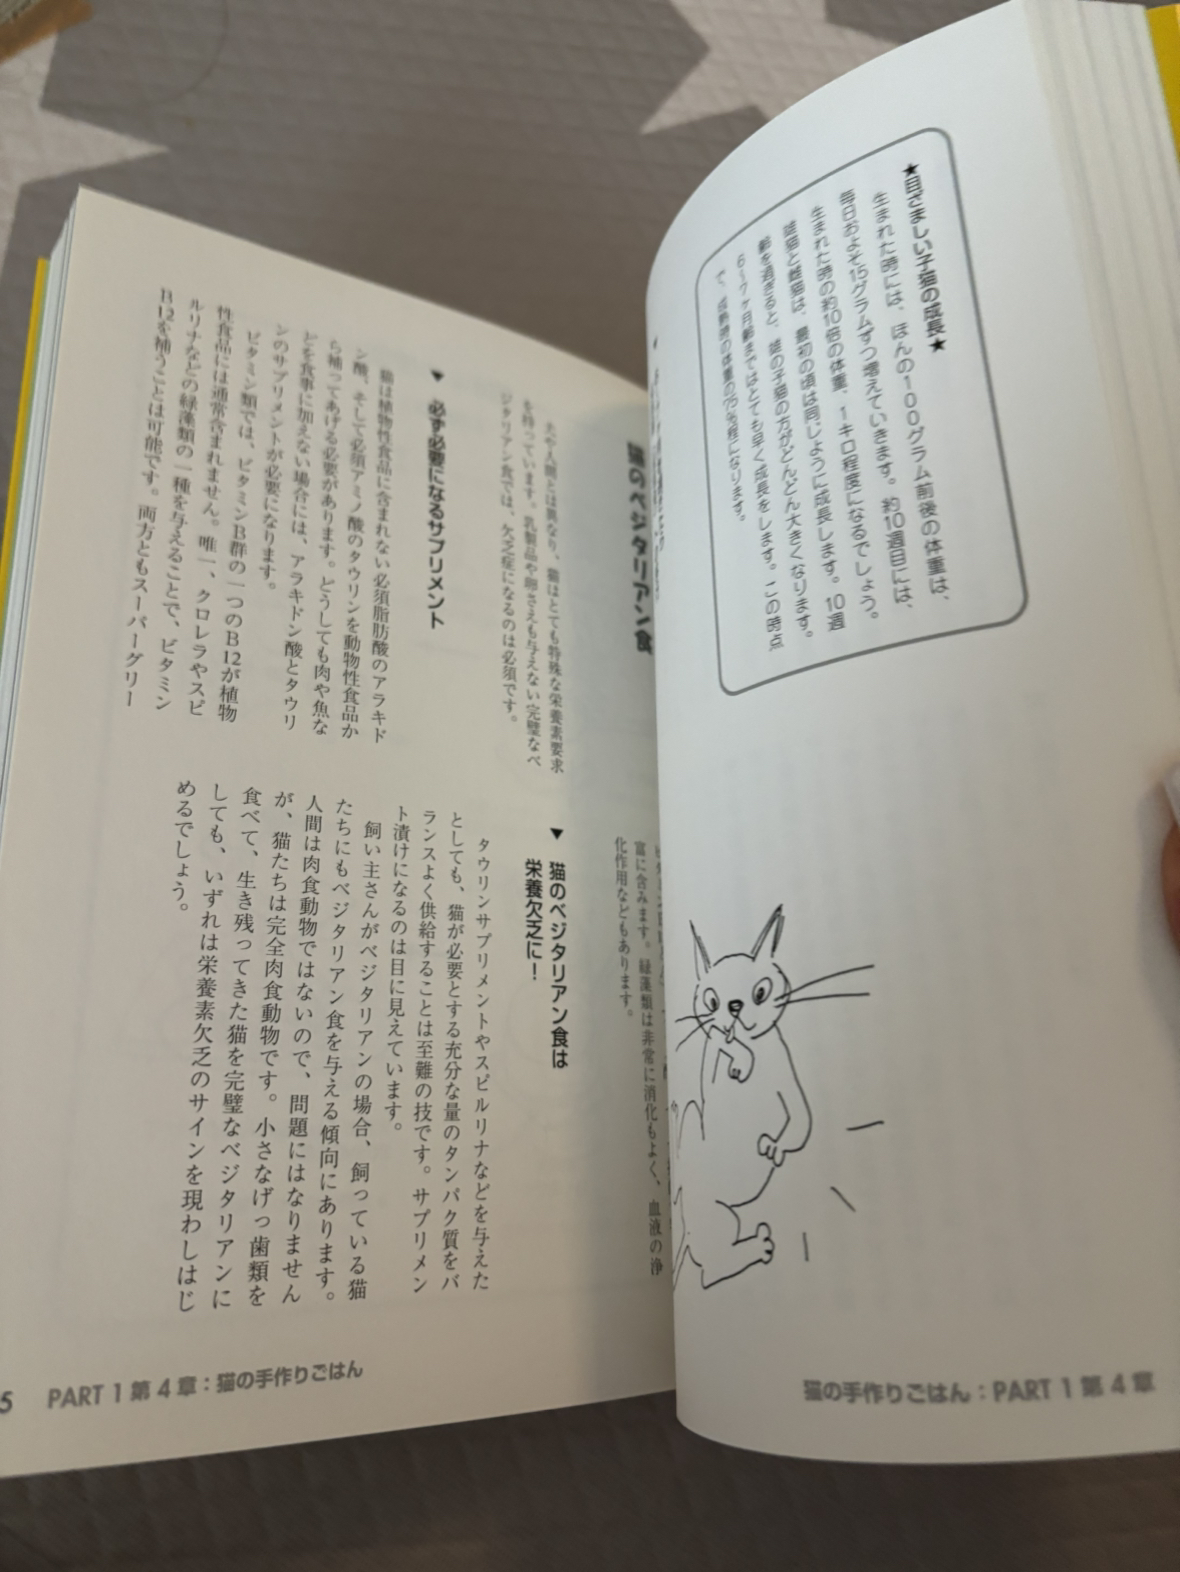 ★目ざましい子猫の成長★
生まれた時には、ほんの100グラム前後の体重は、
毎日およそ15グラムずつ増えていきます。約10週目には、
生まれた時の約10倍の体重、1キロ程度になるでしょう。
雄猫と雌猫は、最初の頃は同じように成長します。10週
齢を過ぎると、雄の子猫の方がどんどん大きくなります。
6～7ヶ月齢まではとても早く成長をします。この時点
で、成熟時の体重の75%程になります。
猫の手作りごはん：PART 1 第 4 章
猫のベジタリアン食
犬や人間とは異なり、猫はとても特殊な栄養素要求
を持っています。乳製品や卵さえも与えない完璧なベ
ジタリアン食では、欠乏症になるのは必須です。
▼ 必ず必要になるサプリメント
猫は植物性食品に含まれない必須脂肪酸のアラキド
ン酸、そして必須アミノ酸のタウリンを動物性食品か
ら補ってあげる必要があります。どうしても肉や魚な
どを食事に加えない場合には、アラキドン酸とタウリ
ンのサプリメントが必要になります。
ビタミン類では、ビタミンB群の一つのB12が植物
性食品には通常含まれません。唯一、クロレラやスピ
ルリナなどの緑藻類の一種を与えることで、ビタミン
B12を補うことは可能です。両方ともスーパーグリー
富に含みます。緑藻類は非常に消化もよく、血液の浄
化作用などもあります。
▼ 猫のベジタリアン食は
栄養欠乏に！
タウリンサプリメントやスピルリナなどを与えた
としても、猫が必要とする充分な量のタンパク質をバ
ランスよく供給することは至難の技です。サプリメン
ト漬けになるのは目に見えています。
飼い主さんがベジタリアンの場合、飼っている猫
たちにもベジタリアン食を与える傾向にあります。
人間は肉食動物ではないので、問題にはなりません
が、猫たちは完全肉食動物です。小さなげっ歯類を
食べて、生き残ってきた猫を完璧なベジタリアンに
しても、いずれは栄養素欠乏のサインを現わしはじ
めるでしょう。
5 PART 1 第 4 章：猫の手作りごはん